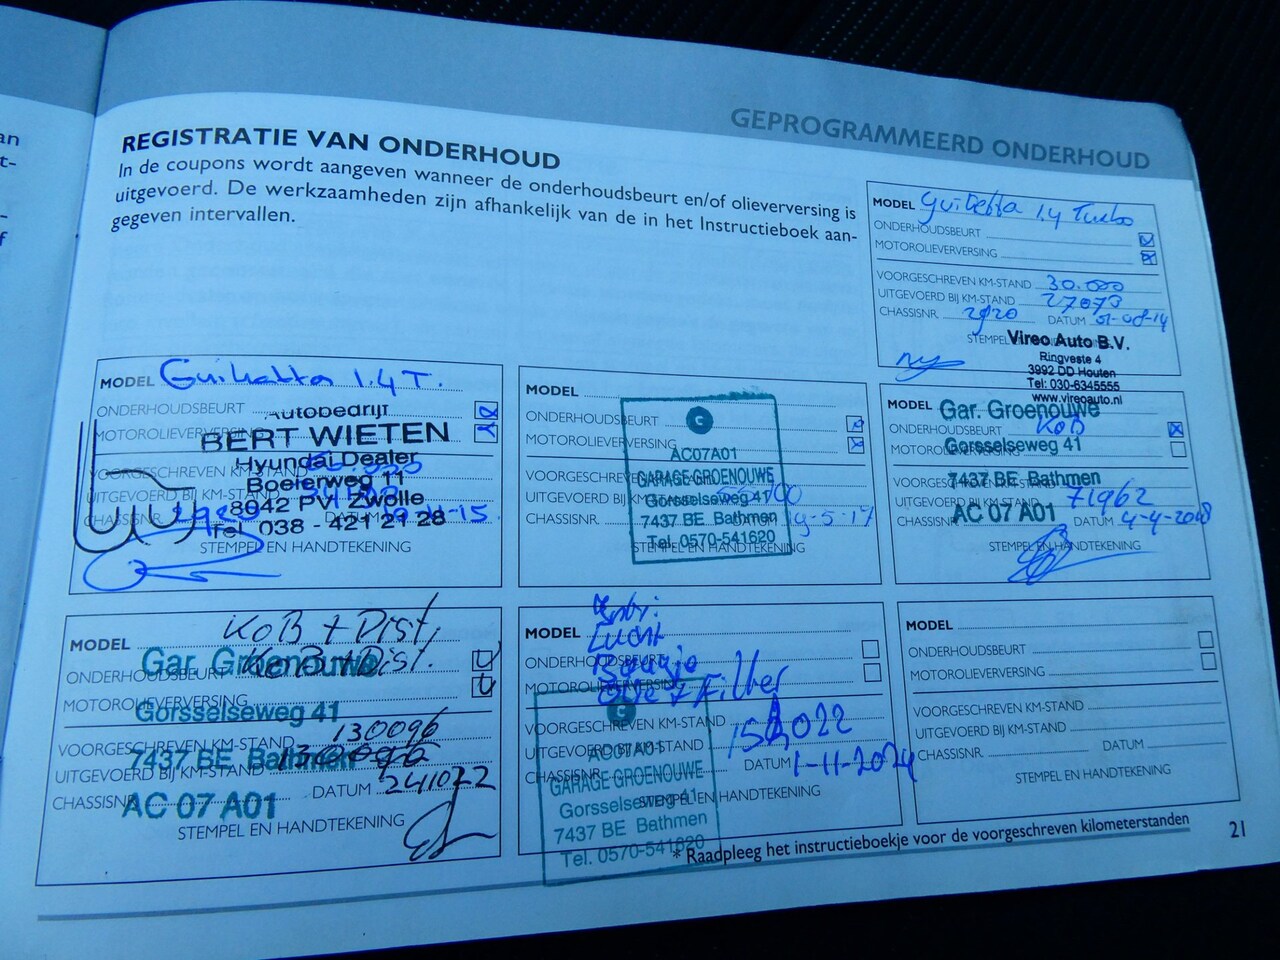 an
t-
-
f
GEPROGRAMMEERD ONDERHOUD
REGISTRATIE VAN ONDERHOUD
In de coupons wordt aangeven wanneer de onderhoudsbeurt en/of olieverversing is
uitgevoerd. De werkzaamheden zijn afhankelijk van de in het Instructieboek aan-
gegeven intervallen.
MODEL Guiletta 1.4 Turbo
ONDERHOUDSBEURT
MOTOROLIEVERVERSING
VOORGESCHREVEN KM-STAND 30.000
UITGEVOERD BIJ KM-STAND 27073
CHASSISNR. 2920 DATUM 01-08-14
STEMPEL
Vireo Auto B.V.
Ringveste 4
3992 DD Houten
Tel: 030-6345555
www.vireoauto.nl
MODEL Guiletta 1.4 T.
ONDERHOUDSBEURT
MOTOROLIEVERVERSING
Autobedrijf
BERT WIETEN
Hyundai Dealer
Boeierweg 11
8042 PV Zwolle
Tel. 038 - 421 21 28
VOORGESCHREVEN KM-STAND
UITGEVOERD BIJ KM-STAND
CHASSISNR. 2920 DATUM
STEMPEL EN HANDTEKENING
MODEL
ONDERHOUDSBEURT
MOTOROLIEVERVERSING
VOORGESCHREVEN
UITGEVOERD BIJ KM-STAND
CHASSISNR. DATUM 19-5-17
STEMPEL EN HANDTEKENING
C
AC07A01
GARAGE GROENOUWE
Gorsselseweg 41
7437 BE Bathmen
Tel. 0570-541620
MODEL
ONDERHOUDSBEURT KOB
VOORGESCHREVEN KM-STAND
UITGEVOERD BIJ KM-STAND 71962
CHASSISNR. DATUM 4-4-2018
STEMPEL EN HANDTEKENING
Gar. Groenouwe
Gorsselseweg 41
7437 BE Bathmen
AC 07 A01
MODEL KoB + Dist.
ONDERHOUDSBEURT KoB + Dist.
MOTOROLIEVERVERSING
VOORGESCHREVEN KM-STAND 130096
UITGEVOERD BIJ KM-STAND 130096
CHASSISNR. DATUM 241022
STEMPEL EN HANDTEKENING
Gar. Groenouwe
Gorsselseweg 41
7437 BE Bathmen
AC 07 A01
MODEL Lucht
ONDERHOUDSBEURT Bougie
MOTOROLIEVERVERSING Olie + Filter
VOORGESCHREVEN KM-STAND
UITGEVOERD BIJ KM-STAND
CHASSISNR. DATUM 1-11-2024
STEMPEL EN HANDTEKENING
C
AC07A01
GARAGE GROENOUWE
Gorsselseweg 41
7437 BE Bathmen
Tel. 0570-541620
MODEL
ONDERHOUDSBEURT
MOTOROLIEVERVERSING
VOORGESCHREVEN KM-STAND
UITGEVOERD BIJ KM-STAND
CHASSISNR. DATUM
STEMPEL EN HANDTEKENING
* Raadpleeg het instructieboekje voor de voorgeschreven kilometerstanden
21